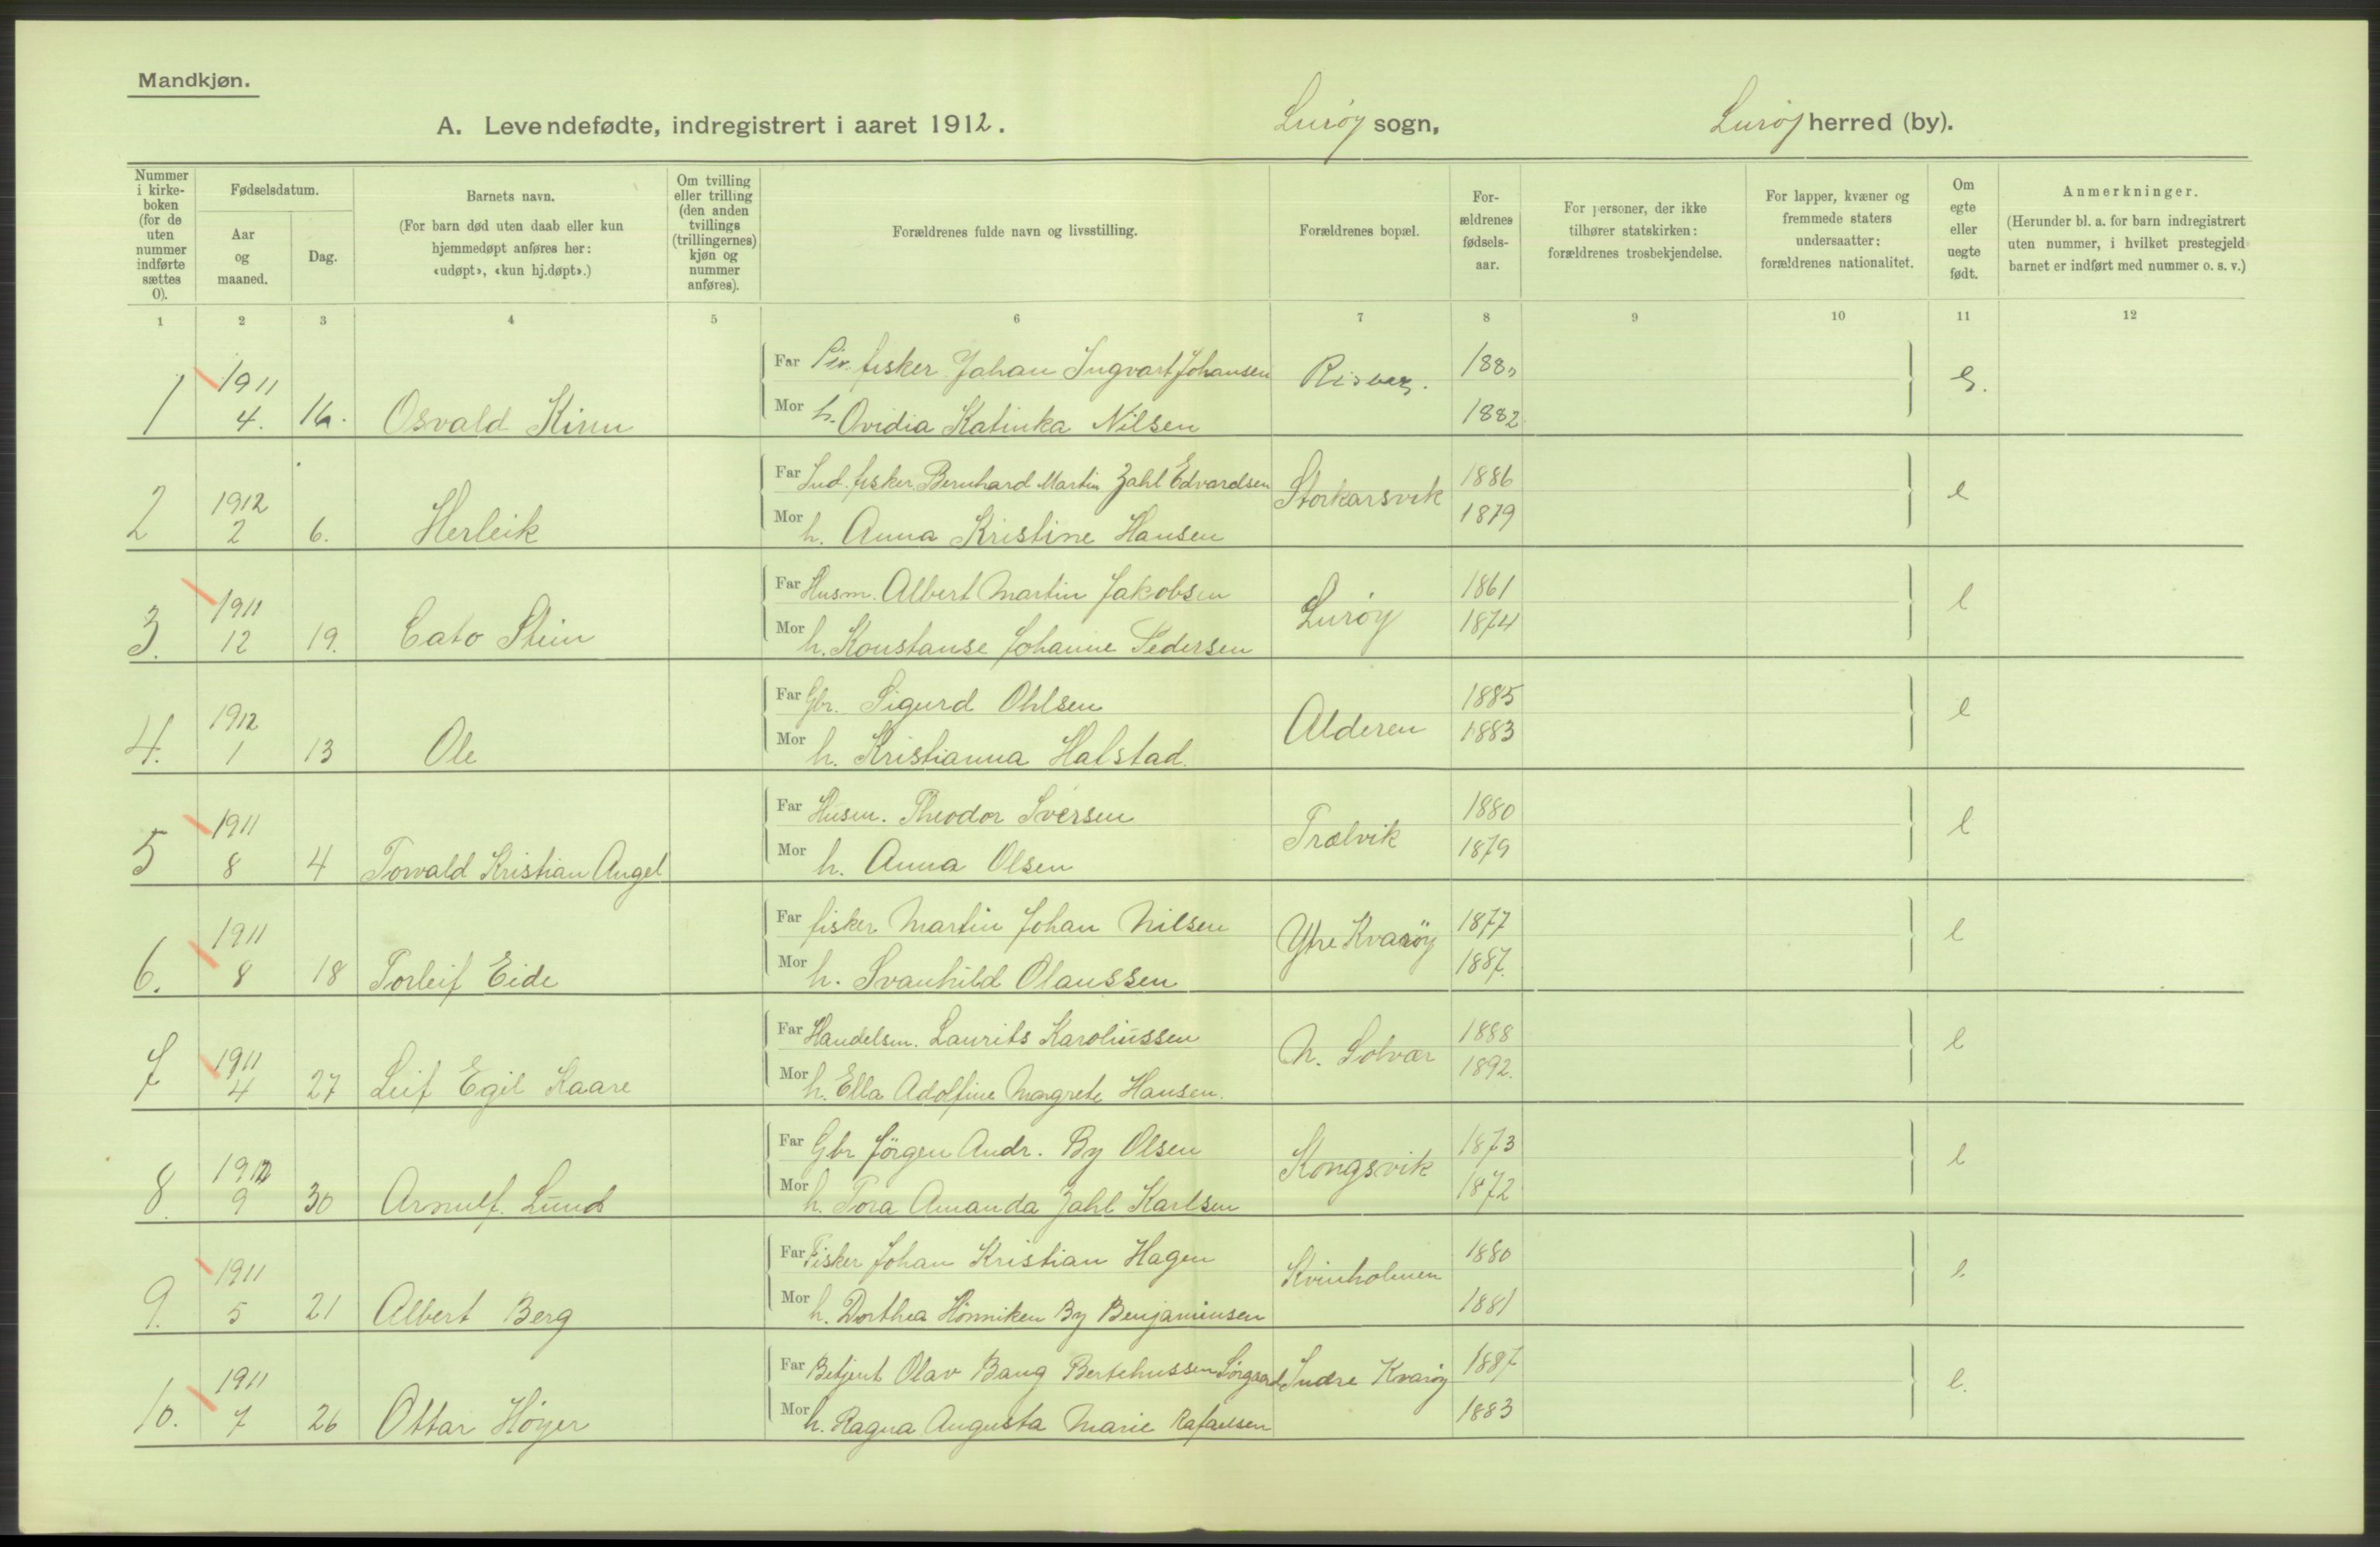 Mandkjøn.
A. Levendefødte, indregistrert i aaret 1912. Lurøy sogn, Lurøy herred (by).
Nummer i kirkeboken (for de uten nummer indførte sættes 0).
Fødselsdatum.
Aar og maaned.
Dag.
Barnets navn.
(For barn død uten daab eller kun hjemmedøpt anføres her: «udøpt», «kun hj.døpt».)
Om tvilling eller trilling (den anden tvillings (trillingernes) kjøn og nummer anføres).
Forældrenes fulde navn og livsstilling.
Forældrenes bopæl.
Forældrenes fødselsaar.
For personer, der ikke tilhører statskirken: forældrenes trosbekjendelse.
For lapper, kvæner og fremmede staters undersaatter: forældrenes nationalitet.
Om egte eller uegte født.
Anmerkninger.
(Herunder bl. a. for barn indregistrert uten nummer, i hvilket prestegjeld barnet er indført med nummer o. s. v.)
1 2 3 4 5 6 7 8 9 10 11 12
Far fisker Johan Ingvart Johansen 1880
1 1911 4. 16. Osvald Kinn
Mor h. Ovidia Katinka Nilsen 1882
Far Ind. fisker Bernhard Martin Zahl Edvardsen Storkarsvik 1886 e
2 1912 2 6. Herleik
Mor h. Anna Kristine Hansen 1879
Far Husm. Albert Martin Jakobsen Lurøy 1861 e
3. 1911 12 19. Cato Stein
Mor h. Konstanse Johanne Pedersen 1874
Far Gbr. Sigurd Ohlsen Alderen 1885 e
4. 1912 1 13 Ole
Mor h. Kristianna Halstad 1883
Far Husm. Theodor Iversen Trælvik 1880 e
5 1911 8 4 Torvald Kristian Angel
Mor h. Anna Olsen 1879
Far fisker Martin Johan Nilsen Ytre Kvarøy 1877 e
6. 1911 8 18 Torleif Eide
Mor h. Svanhild Olaussen 1887.
Far Handelsm. Laurits Karoliussen N. Solvær 1888 e
7 1911 4 27 Leif Egil Kaare
Mor h. Ella Adolfine Margrete Hansen. 1892.
Far Gbr Jörgen Andr. By Olsen Kongsvik 1873 e
8. 1912 9 30 Arnulf Lund
Mor h. Tora Amanda Zahl Karlsen 1872
Far Fisker Johan Kristian Hagen Kvinholmen 1880 e
9. 1911 5 21 Albert Berg
Mor h. Dorthea Hönniken By Benjaminsen 1881
Far Betjent Olav Bang Bertehussen Sörgaard Indre Kvarøy 1887 e.
10. 1911 7 26 Ottar Höyer
Mor h. Ragna Augusta Marie Rafaelsen 1883